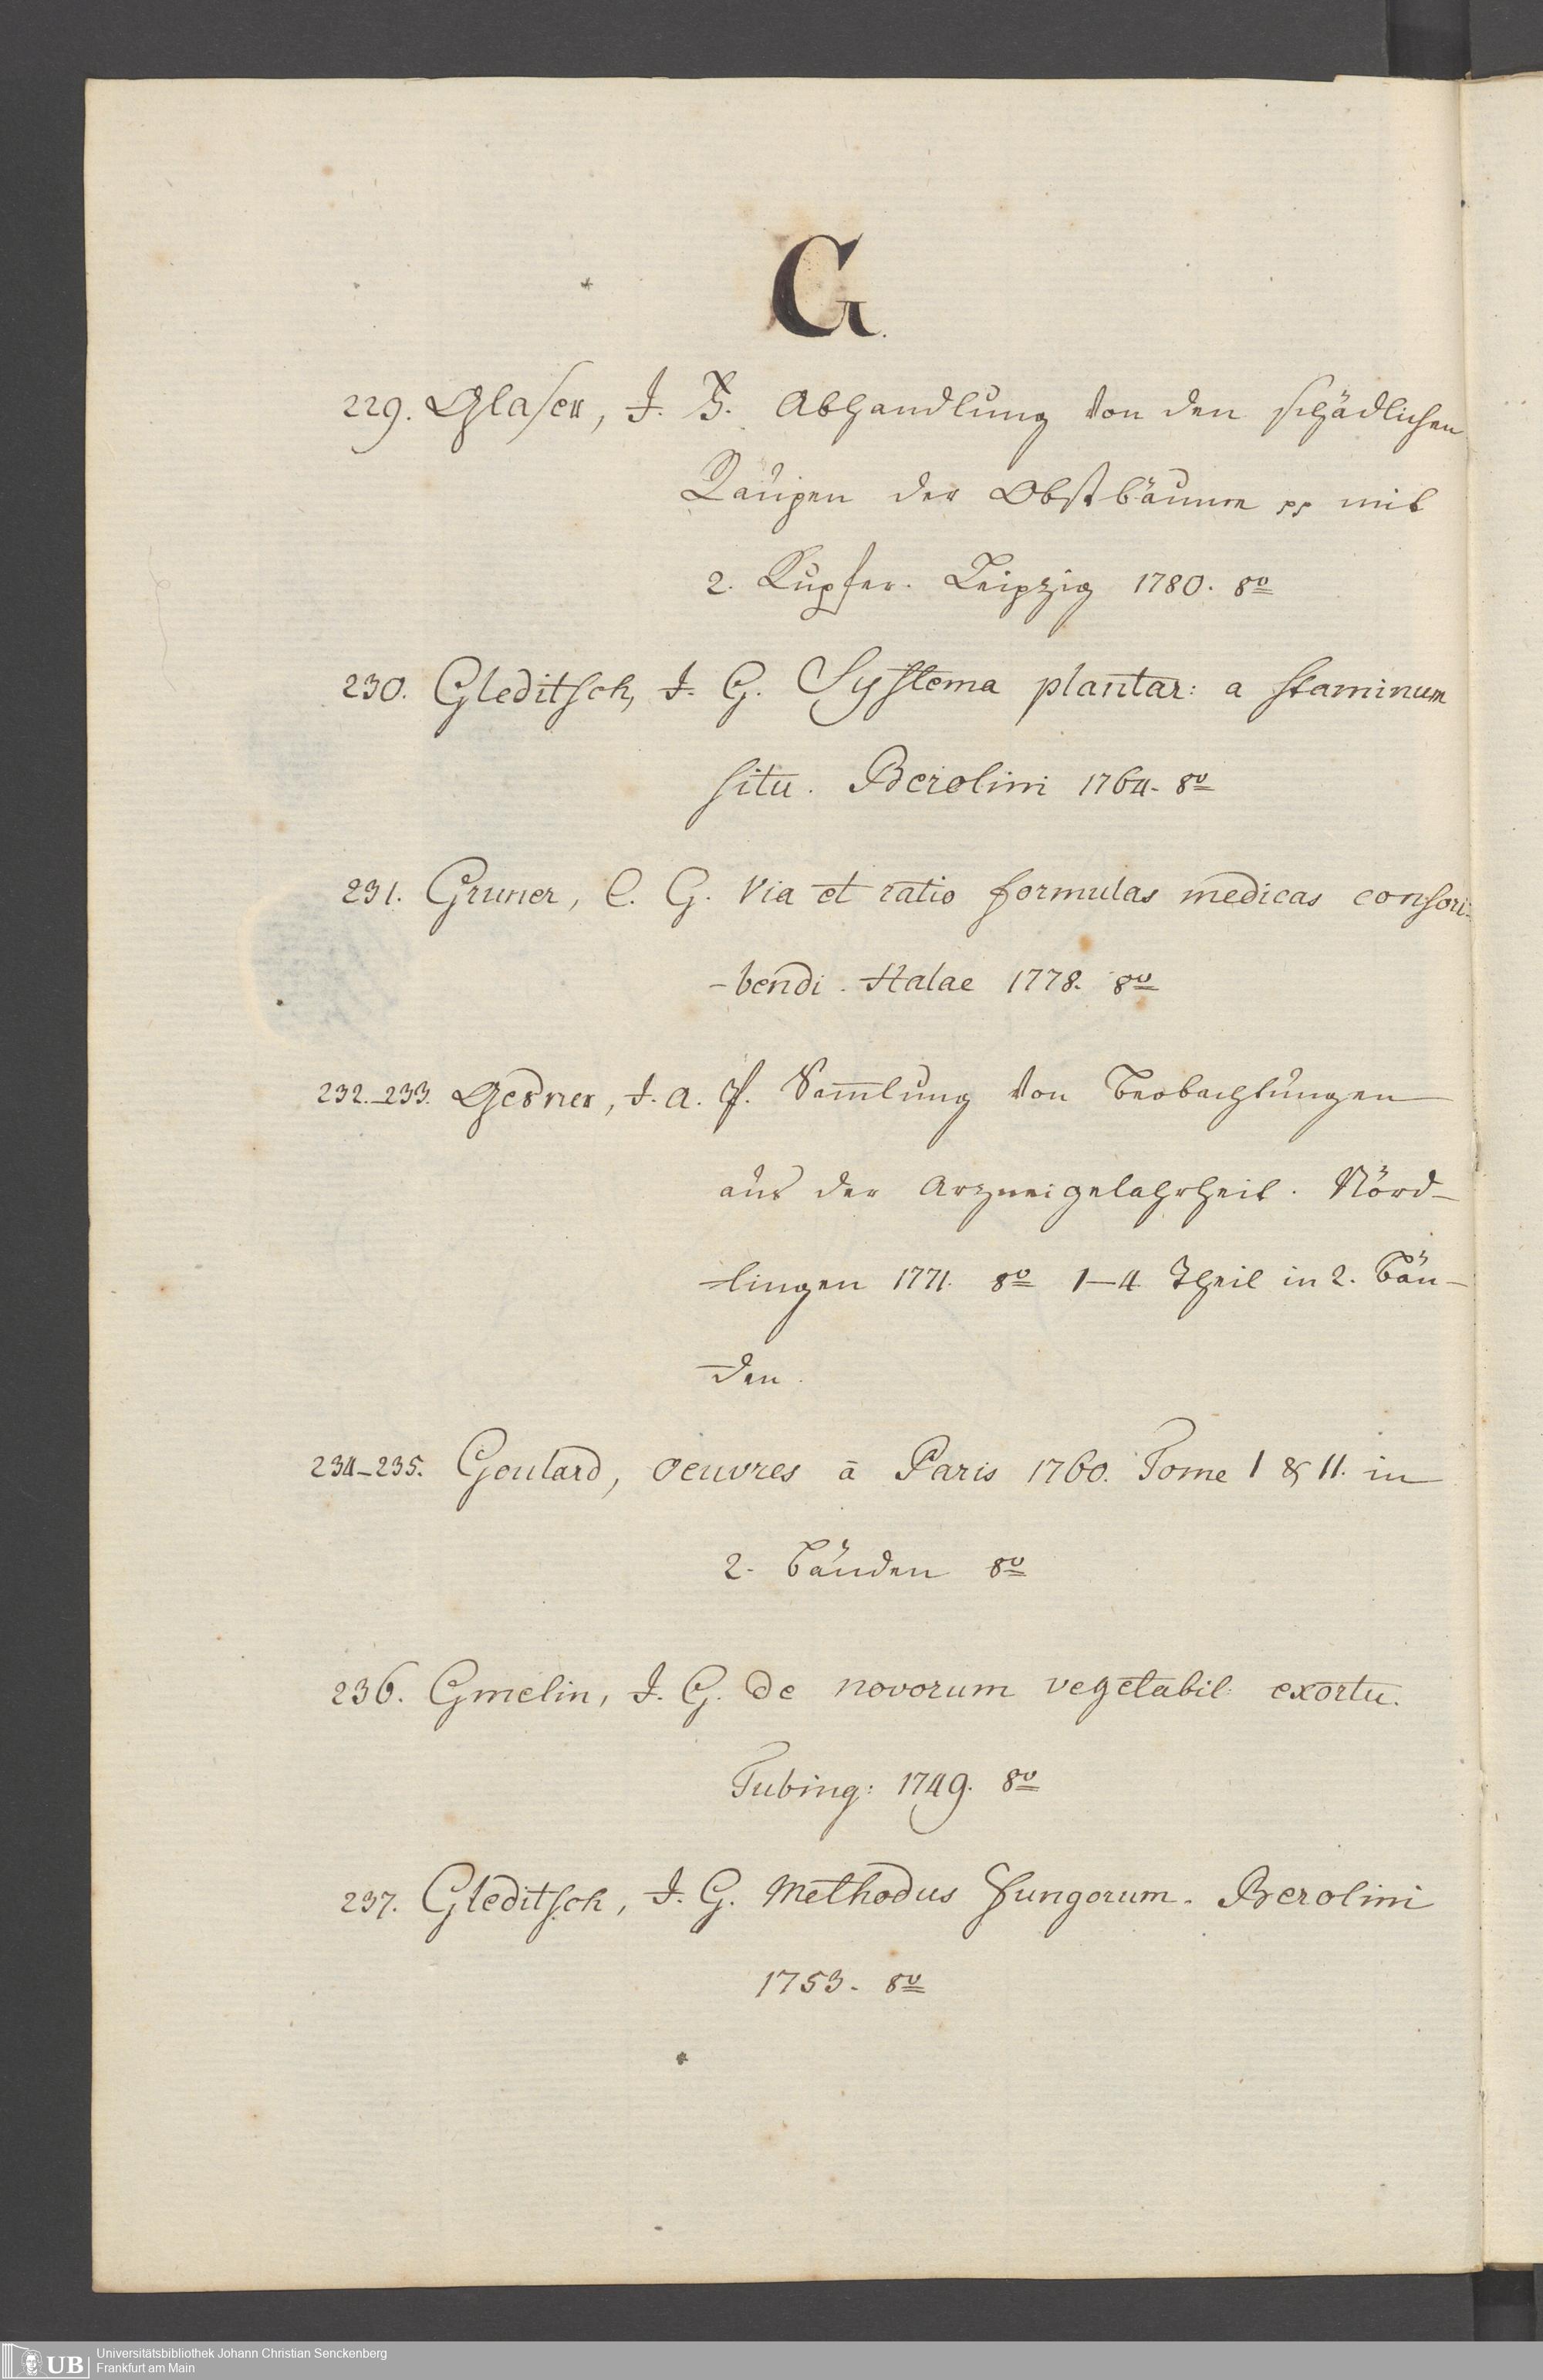 G.
229. Glaser, J. F. Abhandlung von den schädlichen
Raupen der Obstbäume pp mit
2. Kupfer. Leipzig 1780. 8º
230. Gleditsch, J. G. Systema plantar: a staminum
situ. Berolini 1764. 8º
231. Gruner, C. G. Via et ratio formulas medicas conscri:
-bendi. Halae 1778. 8º
232.–233. Gesner, J. A. P. Sam̅lung von Beobachtungen
aus der Arzneigelahrheit. Nörd-
-lingen 1771. 8º 1–4 Theil in 2. Bän-
-den.
234–235. Goulard, oeuvres à Paris 1760. Tome I & II. in
2. Bänden 8º
236. Gmelin, J. G. de novorum vegetabil: exortu.
Tubing: 1749. 8º
237. Gleditsch, J. G. Methodus fungorum. Berolini
1753. 8º
UB Universitätsbibliothek Johann Christian Senckenberg
Frankfurt am Main